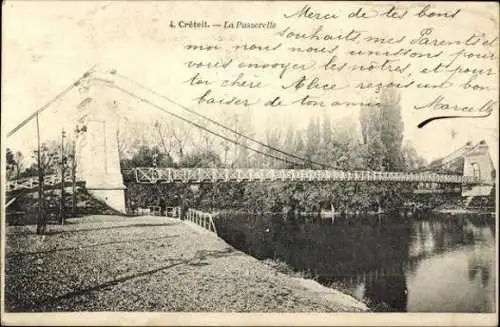 4. Créteil. - La Passerelle
Merci de tes bons
souhaits, mes Parents et
moi nous nous unissons pour
vous envoyer les nôtres, et pour
toi chère Alice reçois un
baiser de ton amie
Marcelle